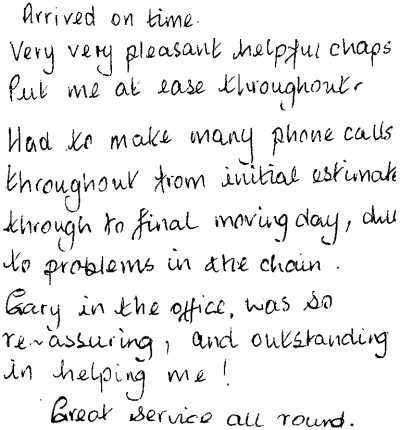 Arrived on time.
Very very pleasant helpful chaps
Put me at ease throughout.
Had to make many phone calls
throughout from initial estimate
through to final moving day, due
to problems in the chain.
Gary in the office, was so
re-assuring, and outstanding
in helping me!
Great service all round.